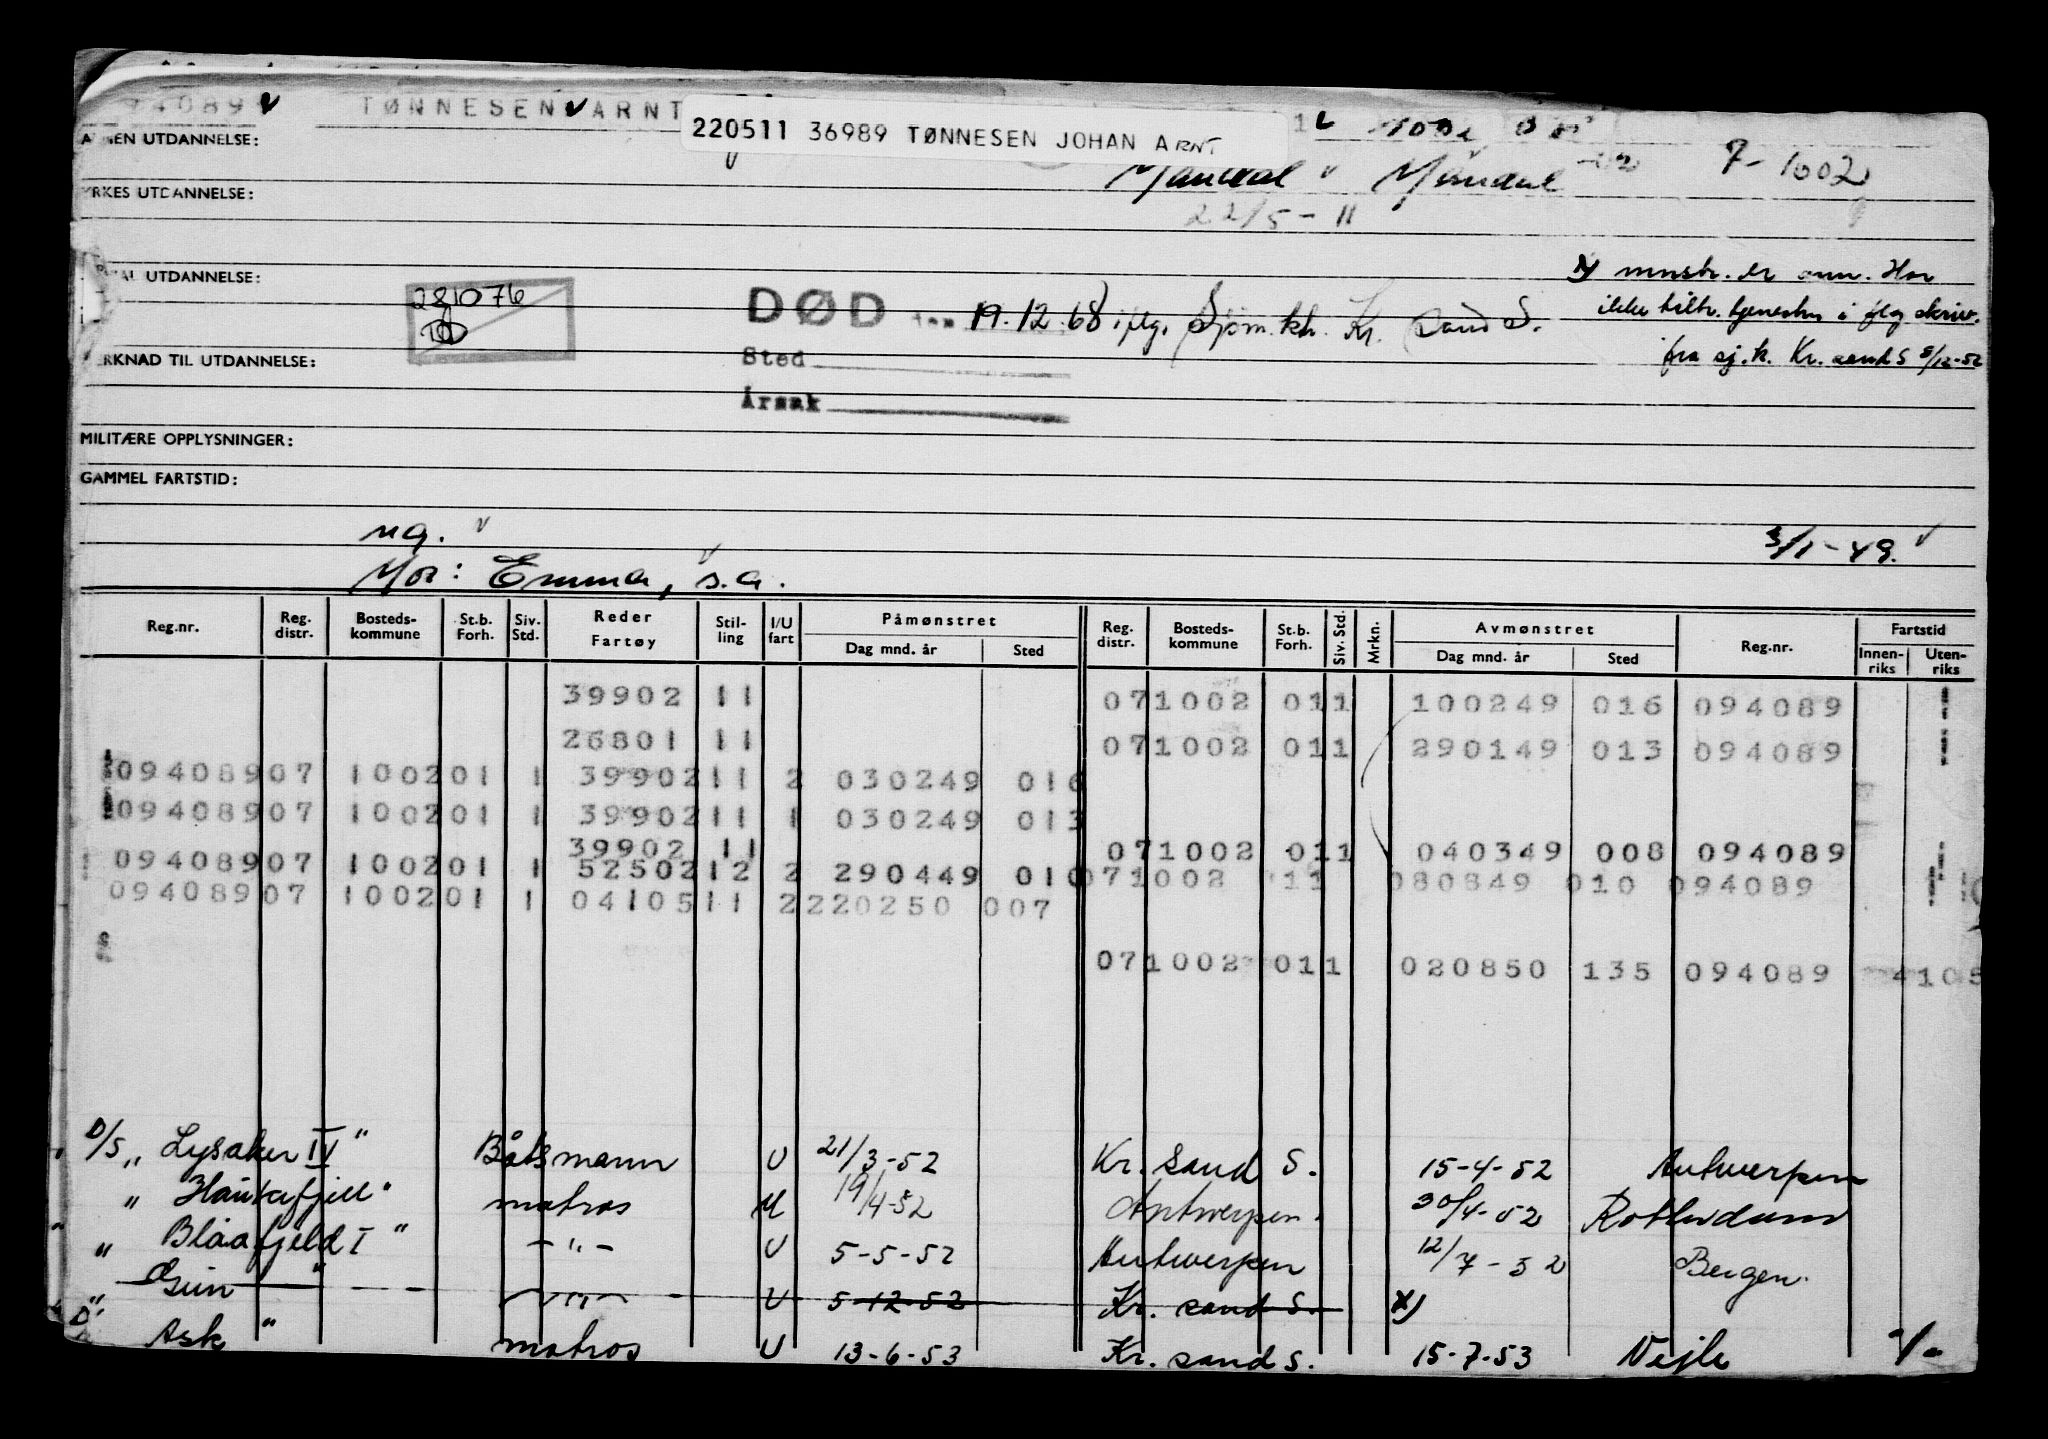 94089 TØNNESEN ARNT
220511 36989 TØNNESEN JOHAN ARNT
UTDANNELSE:
Mandal Mandal 7-1002
YRKES UTDANNELSE:
22/5-11
UTDANNELSE:
281076
DØD 19.12.68 iflg. Sjøm.ktr. Kr. sand S.
x) mnstr. er ann. Har
ikke tiltr. tjenesten i flg skriv.
fra sj.k. Kr. sand S 5/12-52
Sted
MERKNAD TIL UTDANNELSE:
Årsak
MILITÆRE OPPLYSNINGER:
GAMMEL FARTSTID:
ug. 3/1-49.
Mor: Emma, s.a.
Reg.nr. Reg. distr. Bosteds-kommune St.b. Forh. Siv. Std. Reder Fartøy Stil-ling I/U fart Påmønstret Dag mnd. år Sted Reg. distr. Bosteds-kommune St.b. Forh. Siv. Std. Mrkn. Avmønstret Dag mnd. år Sted Reg.nr. Fartstid Innen-riks Uten-riks
39902 11 071002 011 100249 016 094089 1
26801 11 071002 011 290149 013 094089 1
09408907 100201 1 3990211 2 030249 016
09408907 100201 1 3990211 1 030249 013
39902 11 071002 011 040349 008 094089
09408907 100201 1 5250212 2 290449 010 071002 11 080849 010 094089
09408907 100201 1 0410511 2220250 007
071002 011 020850 135 094089 4105
D/S " Lysaker IV " Båtsmann U 21/3-52 Kr. sand S. 15-4-52 Antwerpen
" Haukefjell " matros U 19/4-52 Antwerpen. 30/4-52 Rotterdam
" Blaafjeld I " -"- U 5-5-52 Antwerpen 12/7-52 Bergen.
" Gun " -"- U 5-12-52 Kr. sand S. x)
D" Ask " matros U 13-6-53 Kr. sand S. 15-7-53 Vejle